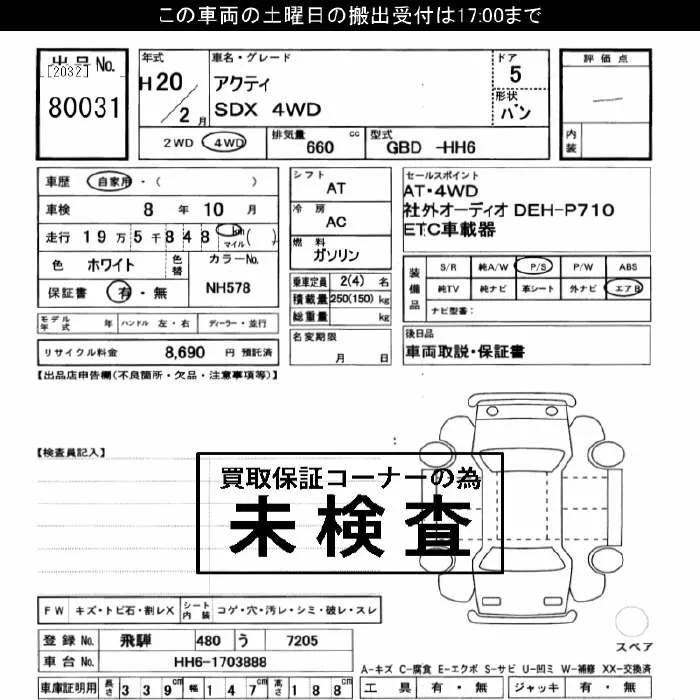 この車両の土曜日の搬出受付は17:00まで
出品No.
[2032]
80031
年式
H20/2月
車名・グレード
アクティ
SDX 4WD
ドア
5
形状
バン
評価点
内装
2WD 4WD
排気量 660 cc
型式 GBD -HH6
車歴 自家用・( )
車検 8年10月
走行 19万5千848 km マイル ( )
色 ホワイト
色替
カラーNo.
NH578
保証書 有・無
シフト
AT
冷房
AC
燃料
ガソリン
乗車定員 2(4) 名
積載量 250(150) kg
総重量 kg
セールスポイント
AT・4WD
社外オーディオ DEH-P710
ETC車載器
装備品
S/R 純A/W P/S P/W ABS
純TV 純ナビ 革シート 外ナビ エアB
ナビ型番:
モデル年式 年 ハンドル 左・右 ディーラー・並行
リサイクル料金 8,690 円 預託済
名変期限
月 日
後日品
車両取説・保証書
【出品店申告欄(不良箇所・欠品・注意事項等)】
【検査員記入】
買取保証コーナーの為
未検査
FW キズ・トビ石・割レX シート内装 コゲ・穴・汚レ・シミ・破レ・スレ
登録No. 飛騨 480 う 7205
車台No. HH6-1703888
車庫証明用 長さ 339cm 幅 147cm 高さ 188cm
スペア
A-キズ C-腐食 E-エクボ S-サビ U-凹ミ W-補修 XX-交換済
工具 有・無 ジャッキ 有・無